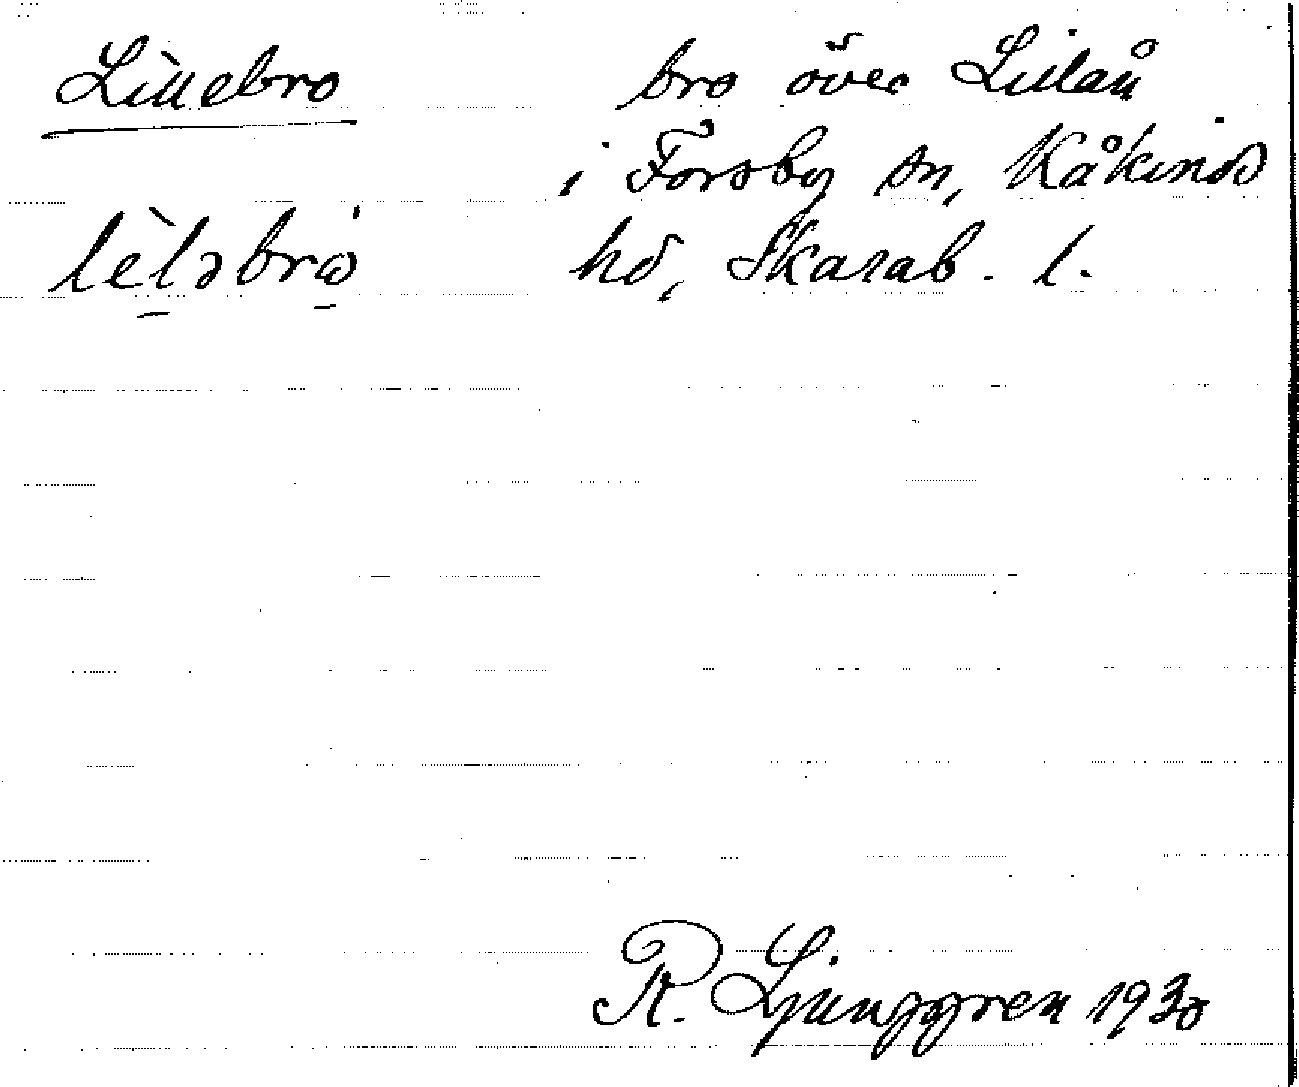 Lillebro
bro över Lillån
i Forsby sn, Kåkinds
hd, Skarab. l.
lèləbrω̍
R. Ljunggren 1930